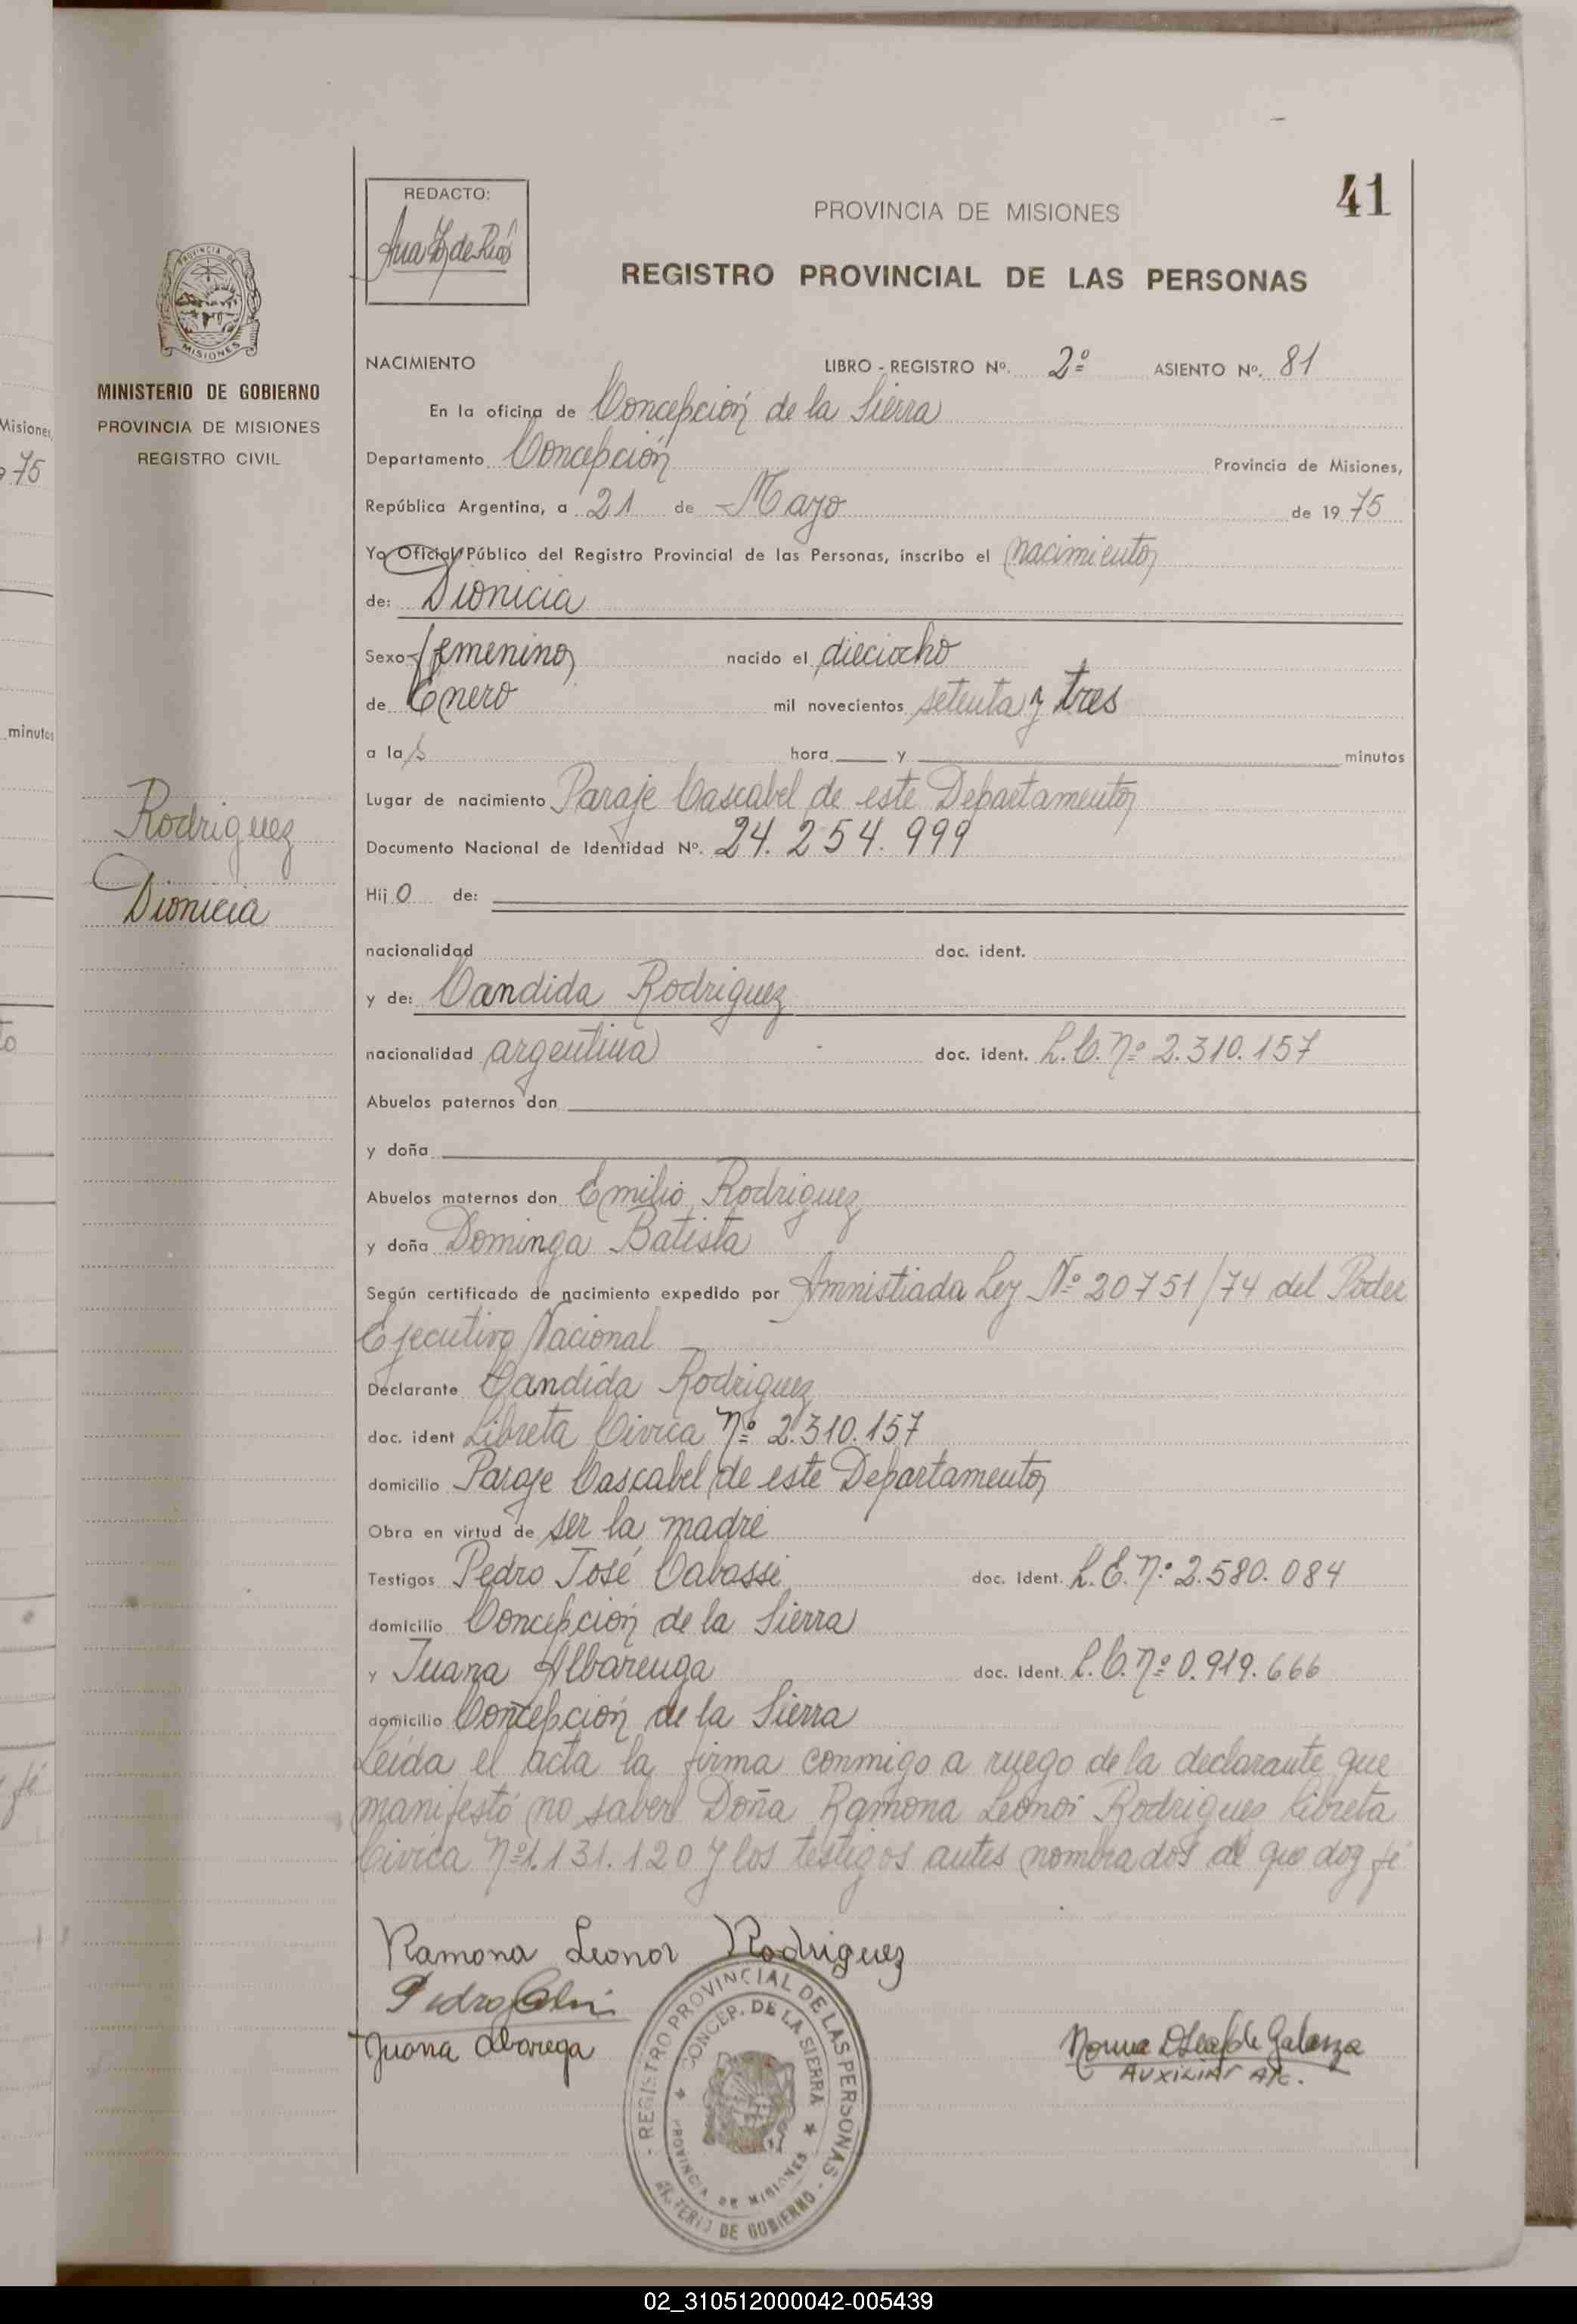 41
REDACTO:
PROVINCIA DE MISIONES
REGISTRO PROVINCIAL DE LAS PERSONAS
PROVINCIA DE
MISIONES
MINISTERIO DE GOBIERNO
PROVINCIA DE MISIONES
REGISTRO CIVIL
Misiones,
75
minutos
Rodriguez
Dionicia
NACIMIENTO LIBRO - REGISTRO Nº. 2º ASIENTO Nº. 81
En la oficina de Concepción de la Sierra
Departamento Concepción Provincia de Misiones,
República Argentina, a 21 de Mayo de 1975
Yo Oficial Público del Registro Provincial de las Personas, inscribo el nacimiento
de: Dionicia
Sexo femenino nacido el dieciocho
de Enero mil novecientos setenta y tres
a las hora y minutos
Lugar de nacimiento Paraje Cascabel de este Departamento
Documento Nacional de Identidad Nº. 24.254.999
Hijo de:
nacionalidad doc. ident.
y de: Candida Rodriguez
nacionalidad argentina doc. ident. L.C. Nº 2.310.157
Abuelos paternos don
y doña
Abuelos maternos don Emilio Rodriguez
y doña Dominga Batista
Según certificado de nacimiento expedido por Amnistiada Ley Nº 20751/74 del Poder
Ejecutivo Nacional
Declarante Candida Rodriguez
doc. ident Libreta Civica Nº 2.310.157
domicilio Paraje Cascabel de este Departamento
Obra en virtud de ser la madre
Testigos Pedro José Cabassi doc. Ident. L.E. Nº 2.580.084
domicilio Concepción de la Sierra
y Juana Albarenga doc. Ident. L.C. Nº 0.919.666
domicilio Concepción de la Sierra
Leida el acta la firma conmigo a ruego de la declarante que
manifestó no saber Doña Ramona Leonor Rodriguez libreta
Civica Nº 1.131.120 y los testigos antes nombrados de que doy fé
Ramona Leonor Rodriguez
Pedro
Juana Abarega
Norma de Galarza
AUXILIAR
REGISTRO PROVINCIAL DE LAS PERSONAS
CONCEP. DE LA SIERRA
PROVINCIA DE MISIONES
DE GOBIERNO
02_310512000042-005439